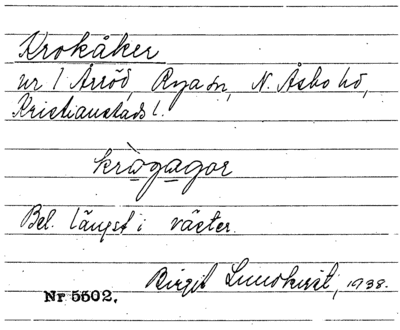 Krokåker
nr 1 Årröd, Rya sn, N. Åsbo hd,
Kristianstads l.
krògagor
Bel. längst i väster.
Birgit Lundkvist, 1938.
Nr 5502.